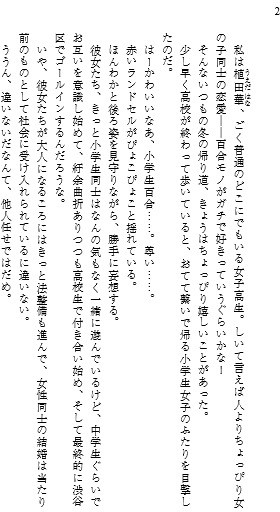 2
私は植田華、ごく普通のどこにでもいる女子高生。しいて言えば人よりちょっぴり女
の子同士の恋愛――百合モノがガチで好きっていうぐらいかな！
そんないつもの冬の帰り道、きょうはちょっぴり嬉しいことがあった。
少し早く高校が終わって歩いていると、おてて繋いで帰る小学生女子のふたりを目撃し
たのだ。
はーかわいいなあ、小学生百合……。尊い……。
赤いランドセルがぴょこぴょこと揺れている。
ほんわかと後ろ姿を見守りながら、勝手に妄想する。
彼女たち、きっと小学生同士はなんの気なく一緒に遊んでいるけど、中学生ぐらいで
お互いを意識し始めて、紆余曲折ありつつも高校生で付き合い始め、そして最終的に渋谷
区でゴールインするんだろうな。
いや、彼女たちが大人になるころにはきっと法整備も進んで、女性同士の結婚は当たり
前のものとして社会に受け入れられているに違いない。
ううん、違いないだなんて、他人任せではだめ。